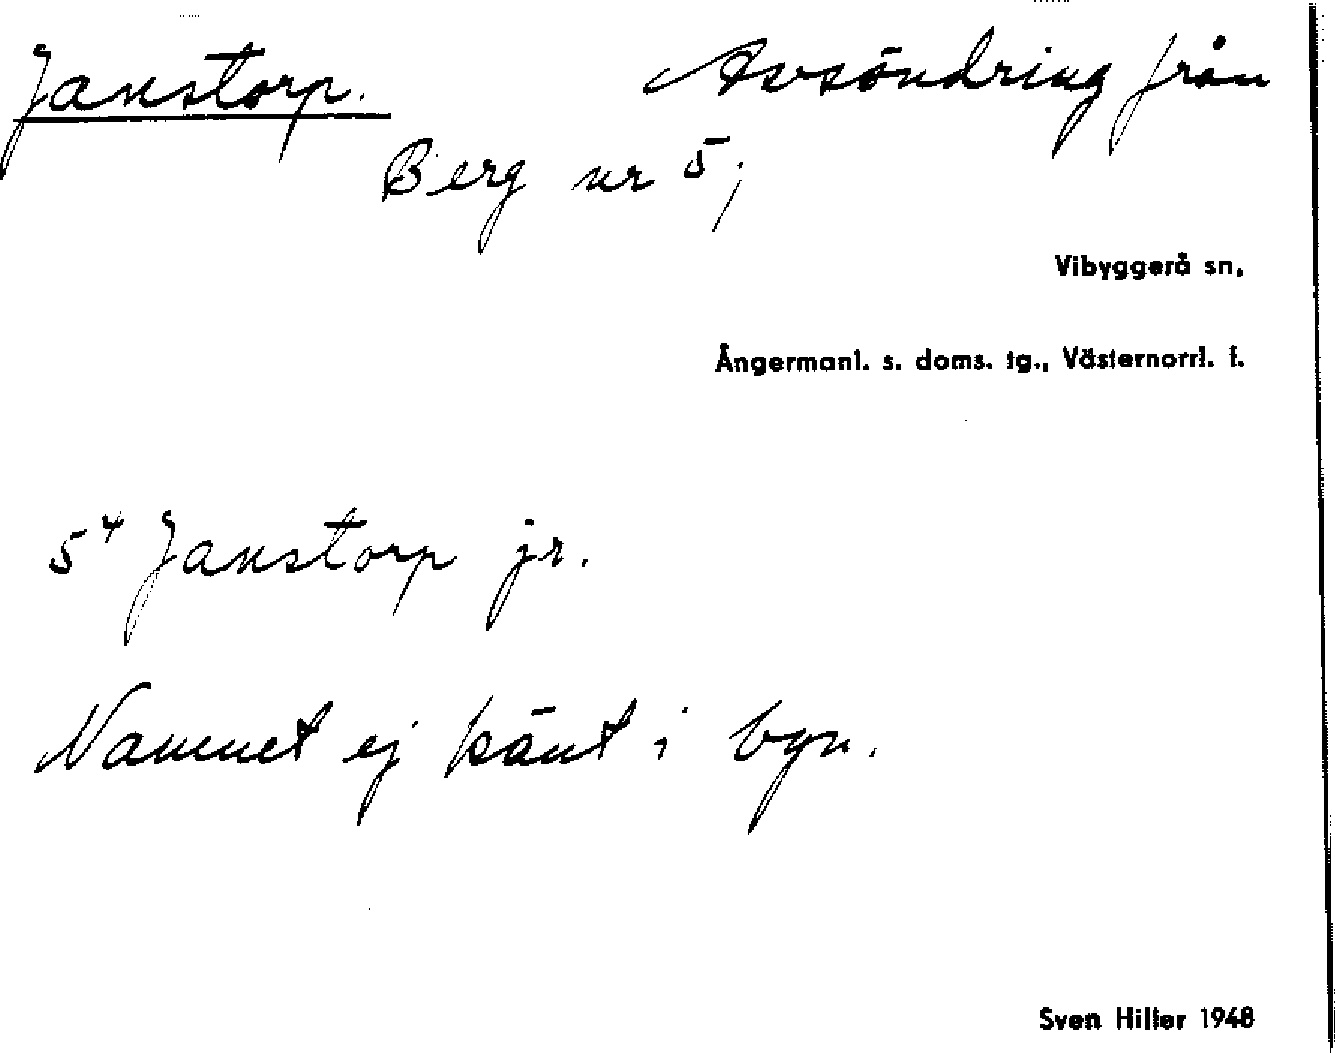 Janstorp. Avsöndring från
Berg nr 5;
Vibyggerå sn,
Ångermanl. s. doms. tg., Västernorrl. l.
5⁴ Janstorp jr.
Namnet ej känt i byn.
Sven Hiller 1948